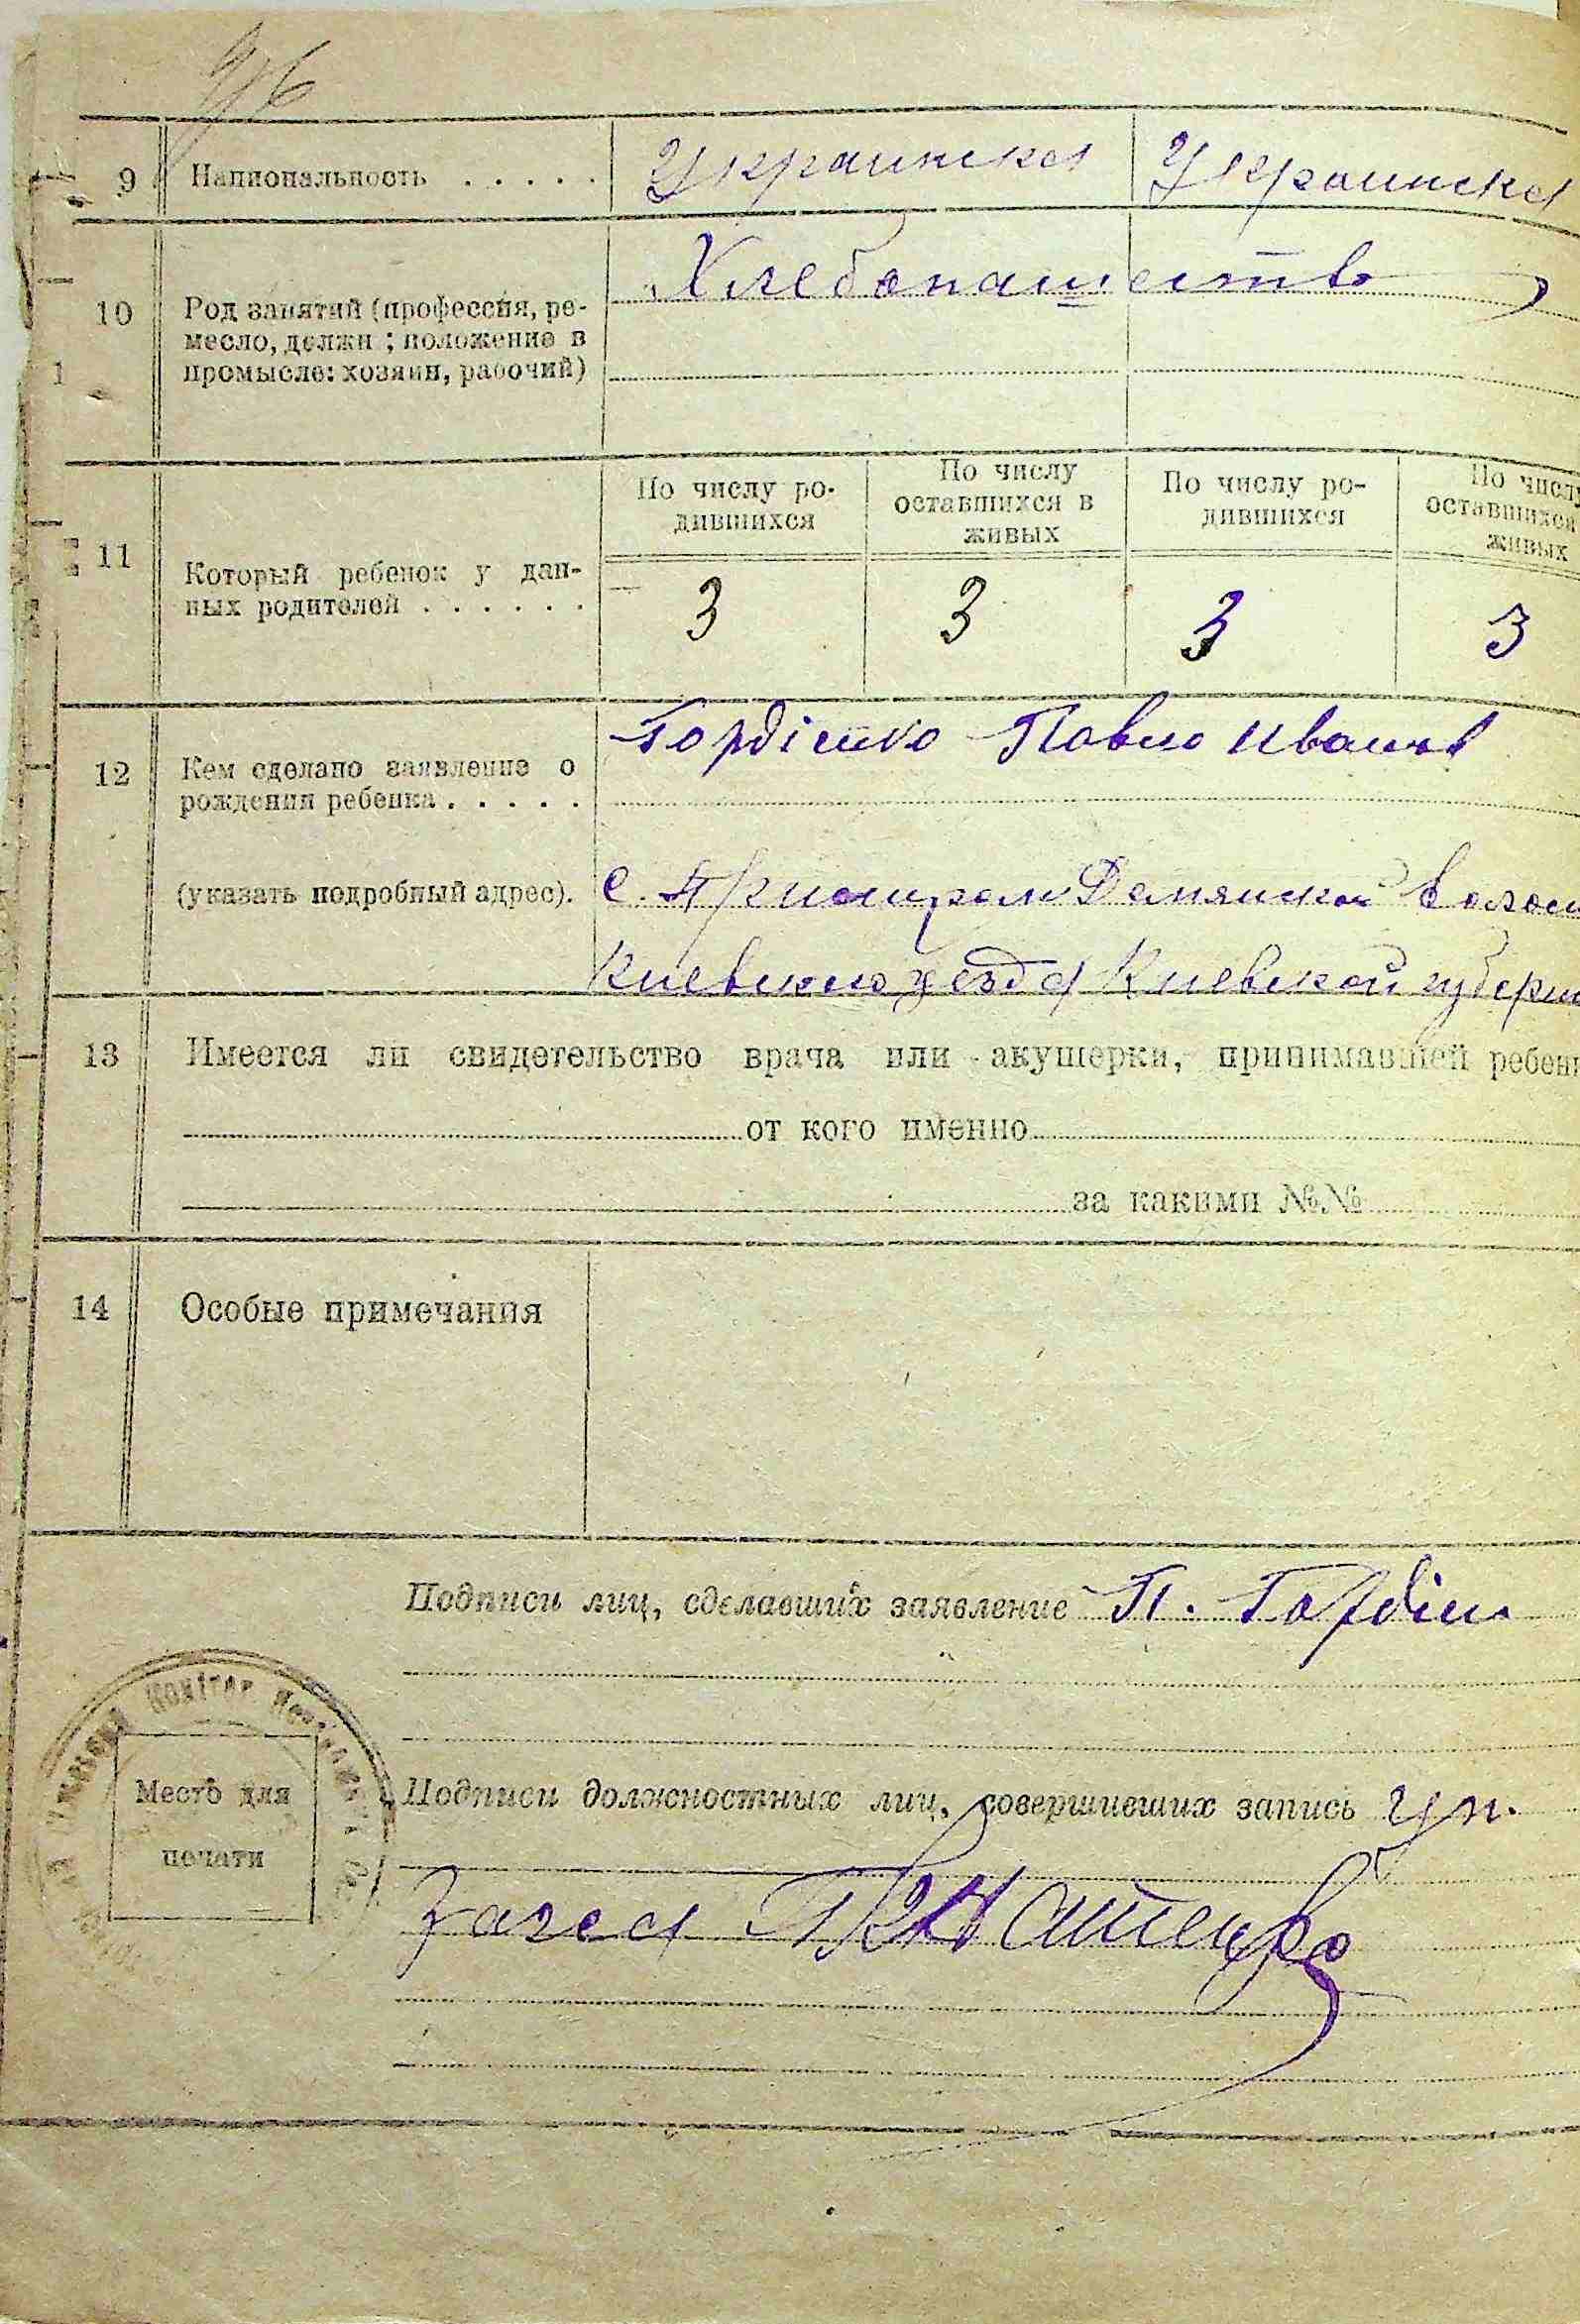 9 Национальность . . . . . Украинска Украинска
10 Род занятий (профессия, ре-
месло, должн ; положение в
промысле: хозяин, рабочий)
Хлебопашество
11 Который ребенок у дан-
ных родителей . . . . . .
По числу ро-
дившихся
По числу
оставшихся в
живых
По числу ро-
дившихся
По числу
оставшихся
живых
3 3 3 3
12 Кем сделано заявление о
рождении ребенка . . . . .
Павло Иванов
(указать подробный адрес).
с. волос
Киевского уезда Киевской губерни
13 Имеется ли свидетельство врача или акушерки, принимавшей ребен
от кого именно
за какими №№
14 Особые примечания
Подписи лиц, сделавших заявление П. Гордіен
Место для
печати
Подписи должностных лиц, совершивших запись Уп.
Загса